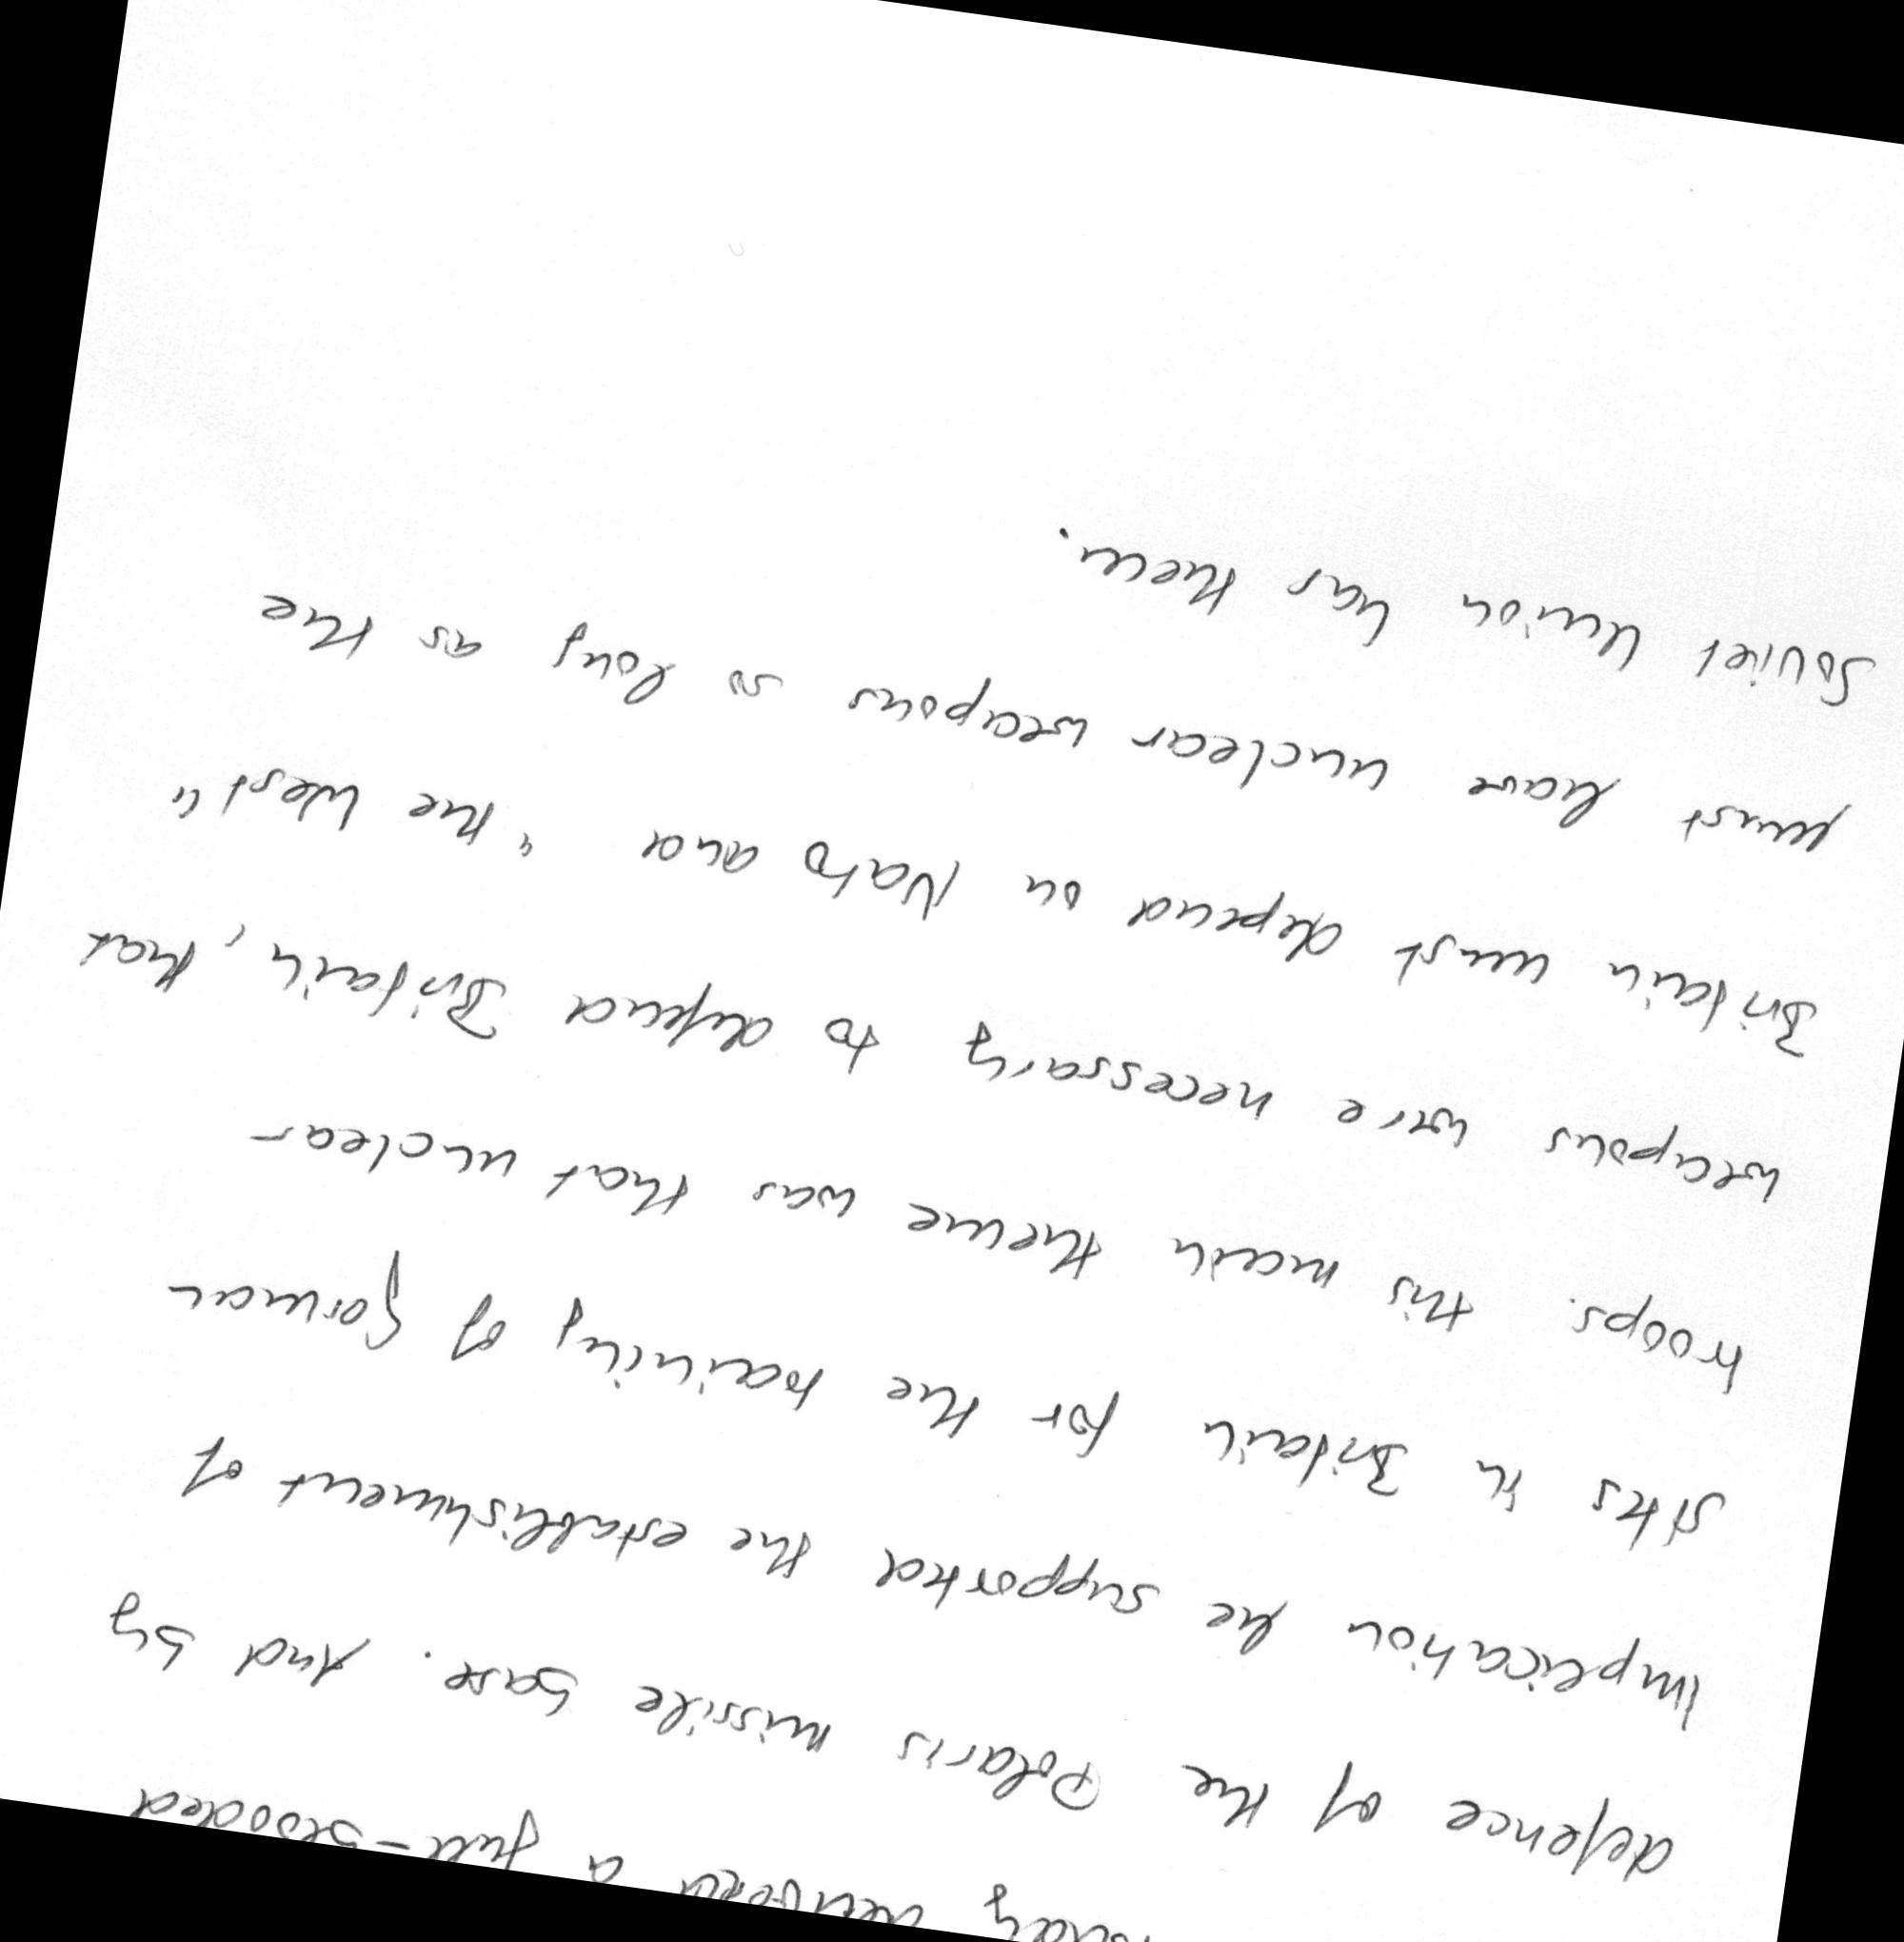 a full-blooded
defence of the Polaris missile base. And by
implication he supported the establishment of
sites in Britain for the training of German
troops. His main theme was that nuclear
weapons were necessary to defend Britain, that
Britain must depend on Nato and "the West"
must have nuclear weapons so long as the
Soviet Union has them.